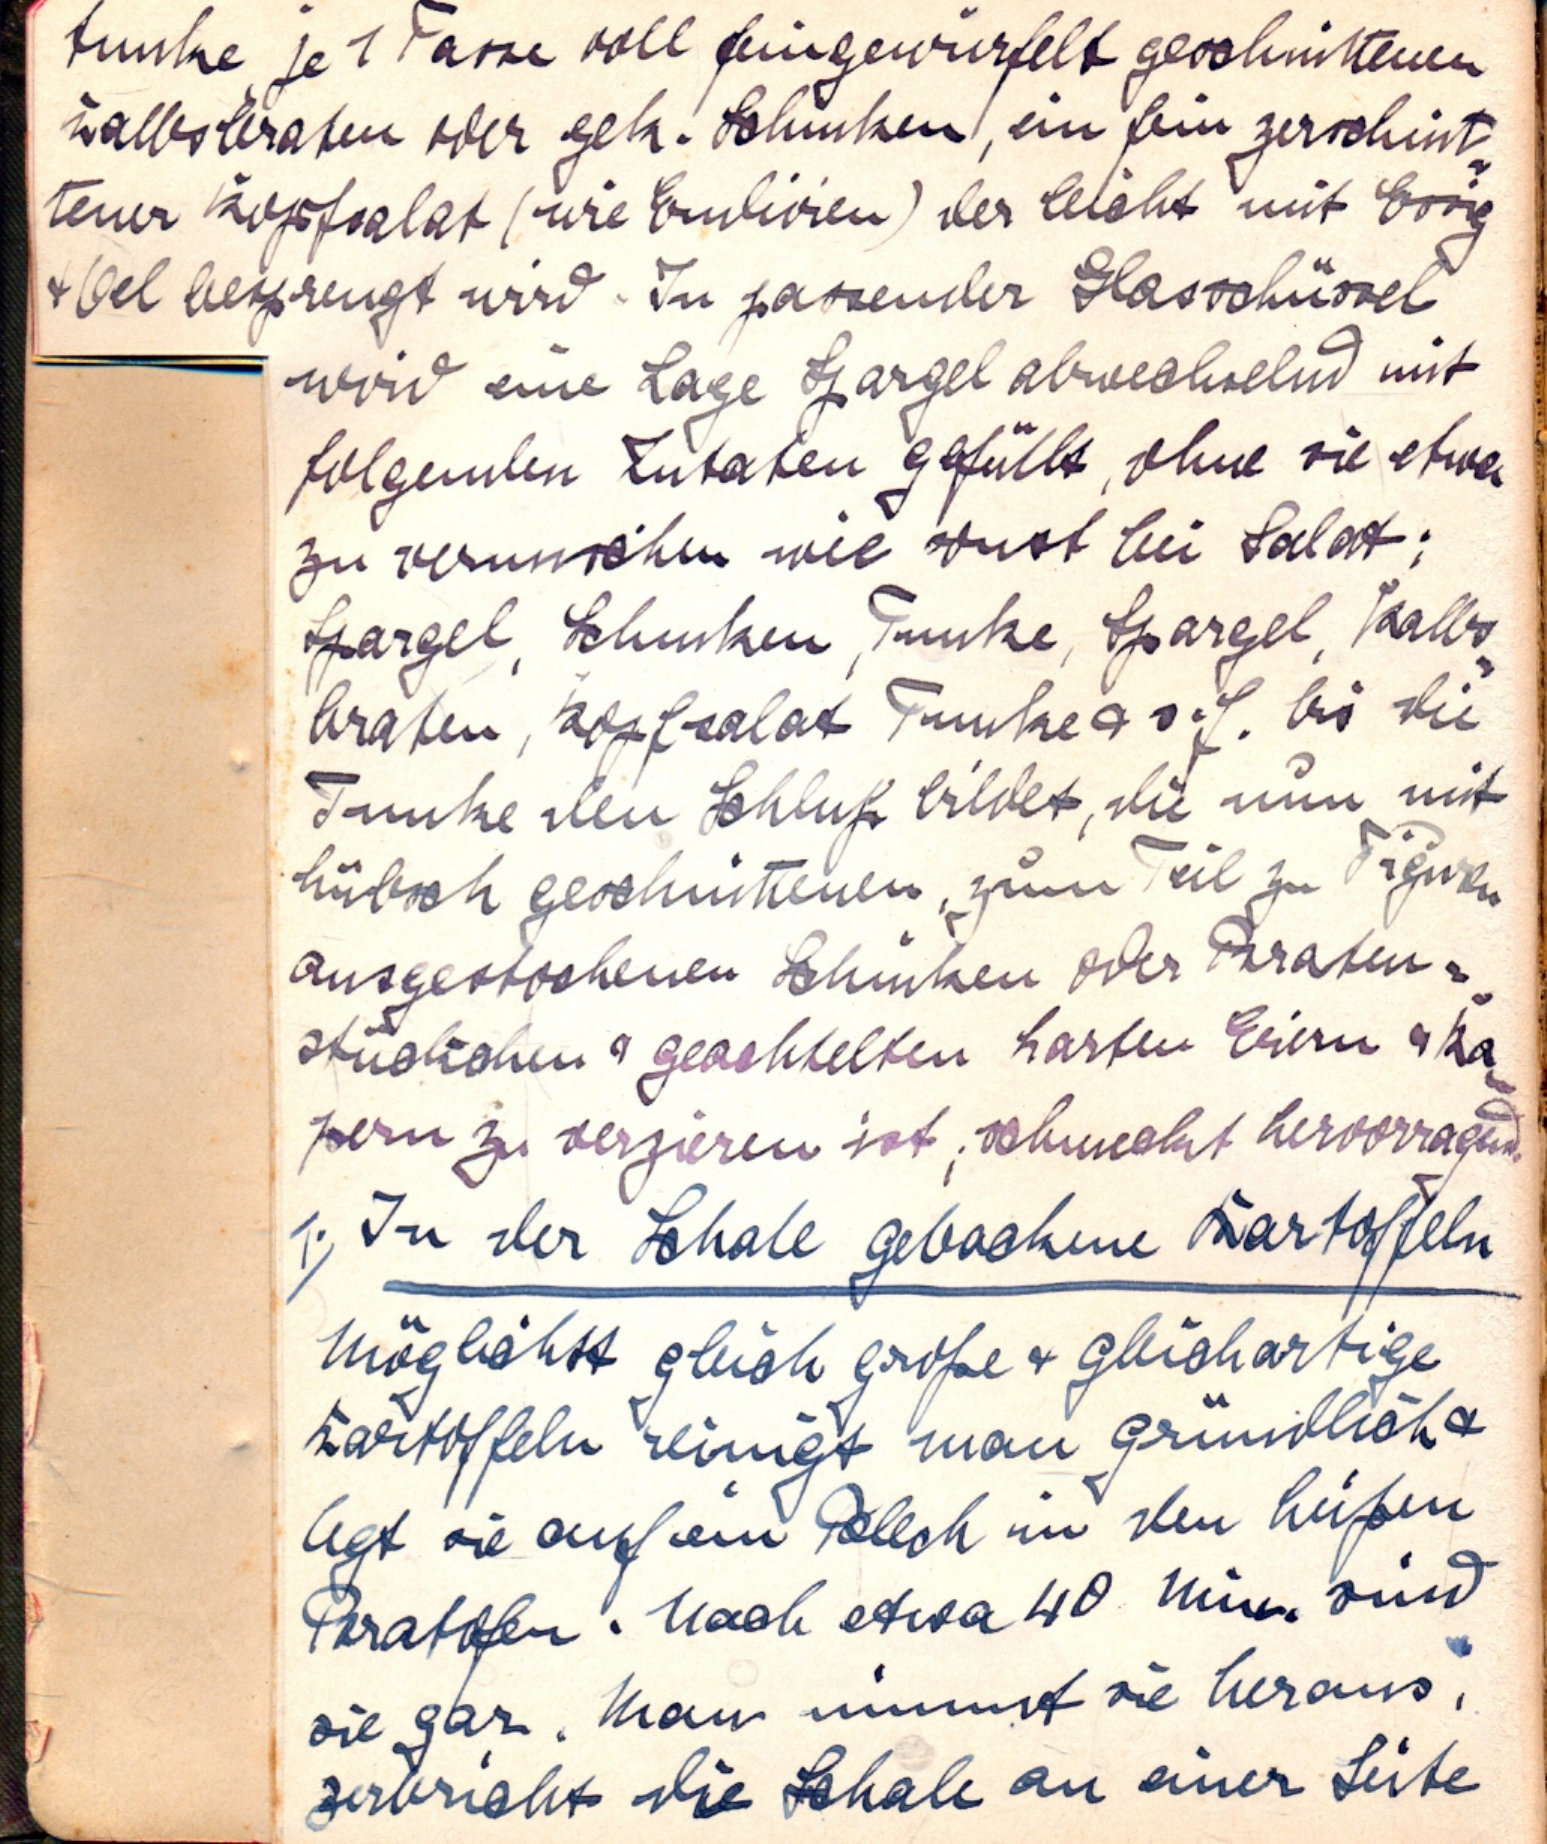 tunke, je 1 Tasse voll feingewürfelt geschnittenen
Kalbsbraten oder gek. Schinken, ein fein zerschnit-
tener Kopfsalat (wie Endivien) der leicht mit Essig
& Oel besprengt wird. In passender Glasschüssel
wird eine Lage Spargel abwechselnd mit
folgenden Zutaten gefüllt, ohne sie etwa
zu vermischen wie sonst bei Salat;
Spargel, Schinken, Tunke, Spargel, Kalbs-
braten, Kopfsalat Tunke & s.f. bis die
Tunke den Schluß bildet, die nun mit
hübsch geschnittenen, zum Teil zu Figuren
ausgestochenen Schinken oder Braten-
stückchen & geachtelten harten Eiern & Ka-
pern zu verzieren ist; schmeckt hervorragend.
1.) In der Schale gebackene Kartoffeln
Möglichst gleich große & gleichartige
Kartoffeln reinigt man gründlich &
legt sie auf ein Blech in den heißen
Bratofen. Nach etwa 40 Min. sind
sie gar. Man nimmt sie heraus,
zerbricht die Schale an einer Seite